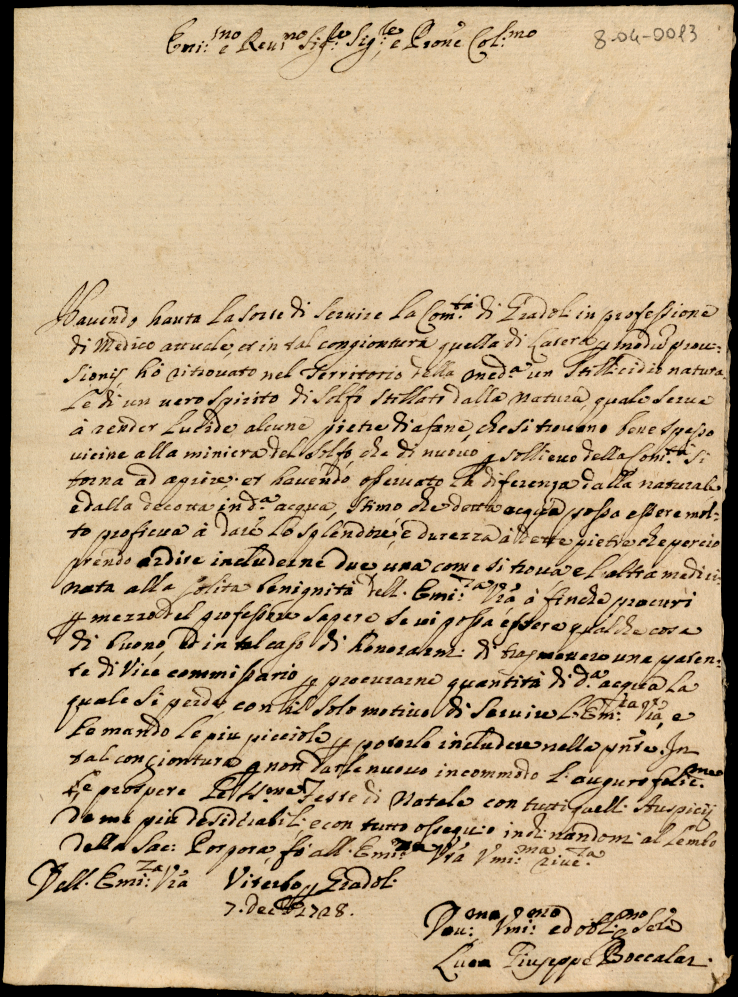 8-04-0013
Emi:mo e Reu:mo Sig:re Sig:re, e Prone Col:mo
Hauendo hauta la sorte di seruire la Com:tà di Gradoli in professione
di Medico attuale, et in tal congiontura quella di
sionis, hò ritrouato nel Territorio della med:a un stillicidio natura
le di un uero spirito di solfo stillato dalla natura, quale serue
à render lucide alcune pietre diafane, che si trouano bene spesso
uicine alla miniera del solfo, che di nuouo p solleuo della Com:tà si
torna ad aprire, et hauendo osseruato la diferenza dalla naturale
e dalla decotta in d:a acqua, stimo che detta acqua possa essere mol-
to proficua à dare lo splendore, e durezza à dette pietre che perciò
prendo ardire includerne due una come si troua e l'altra medici-
nata alla solita benignità dell'Em:za Vra à finche procuri
p mezzo del professore sapere se ui possa essere qualche cosa
di buono, ed in tal caso di honorarmi di trasmettere una paten-
te di Vice commissario p procurarne quantità di d:a acqua la
quale si perde con il solo motiuo di seruire l'Em:za Vra, e
le mando le piu picciole p poterle includere nella pnte. In
tal congiontura p non darle nuouo incommodo l'auguro felic:me
le prospere Feste di Natale con tutti quelli Auspicij
da me piu desiderabili, e con tutto ossequio inclinandomi al lembo
della Sac: Porpora fò all'Emi:za Vra Vmi:ma riue:za
Dell'Emi:za Vra Viterbo p Gradoli
7. Decbre 1728.
Deu:mo Vmi:mo ed obl:mo Sere
Luca Giuseppe Boccalar